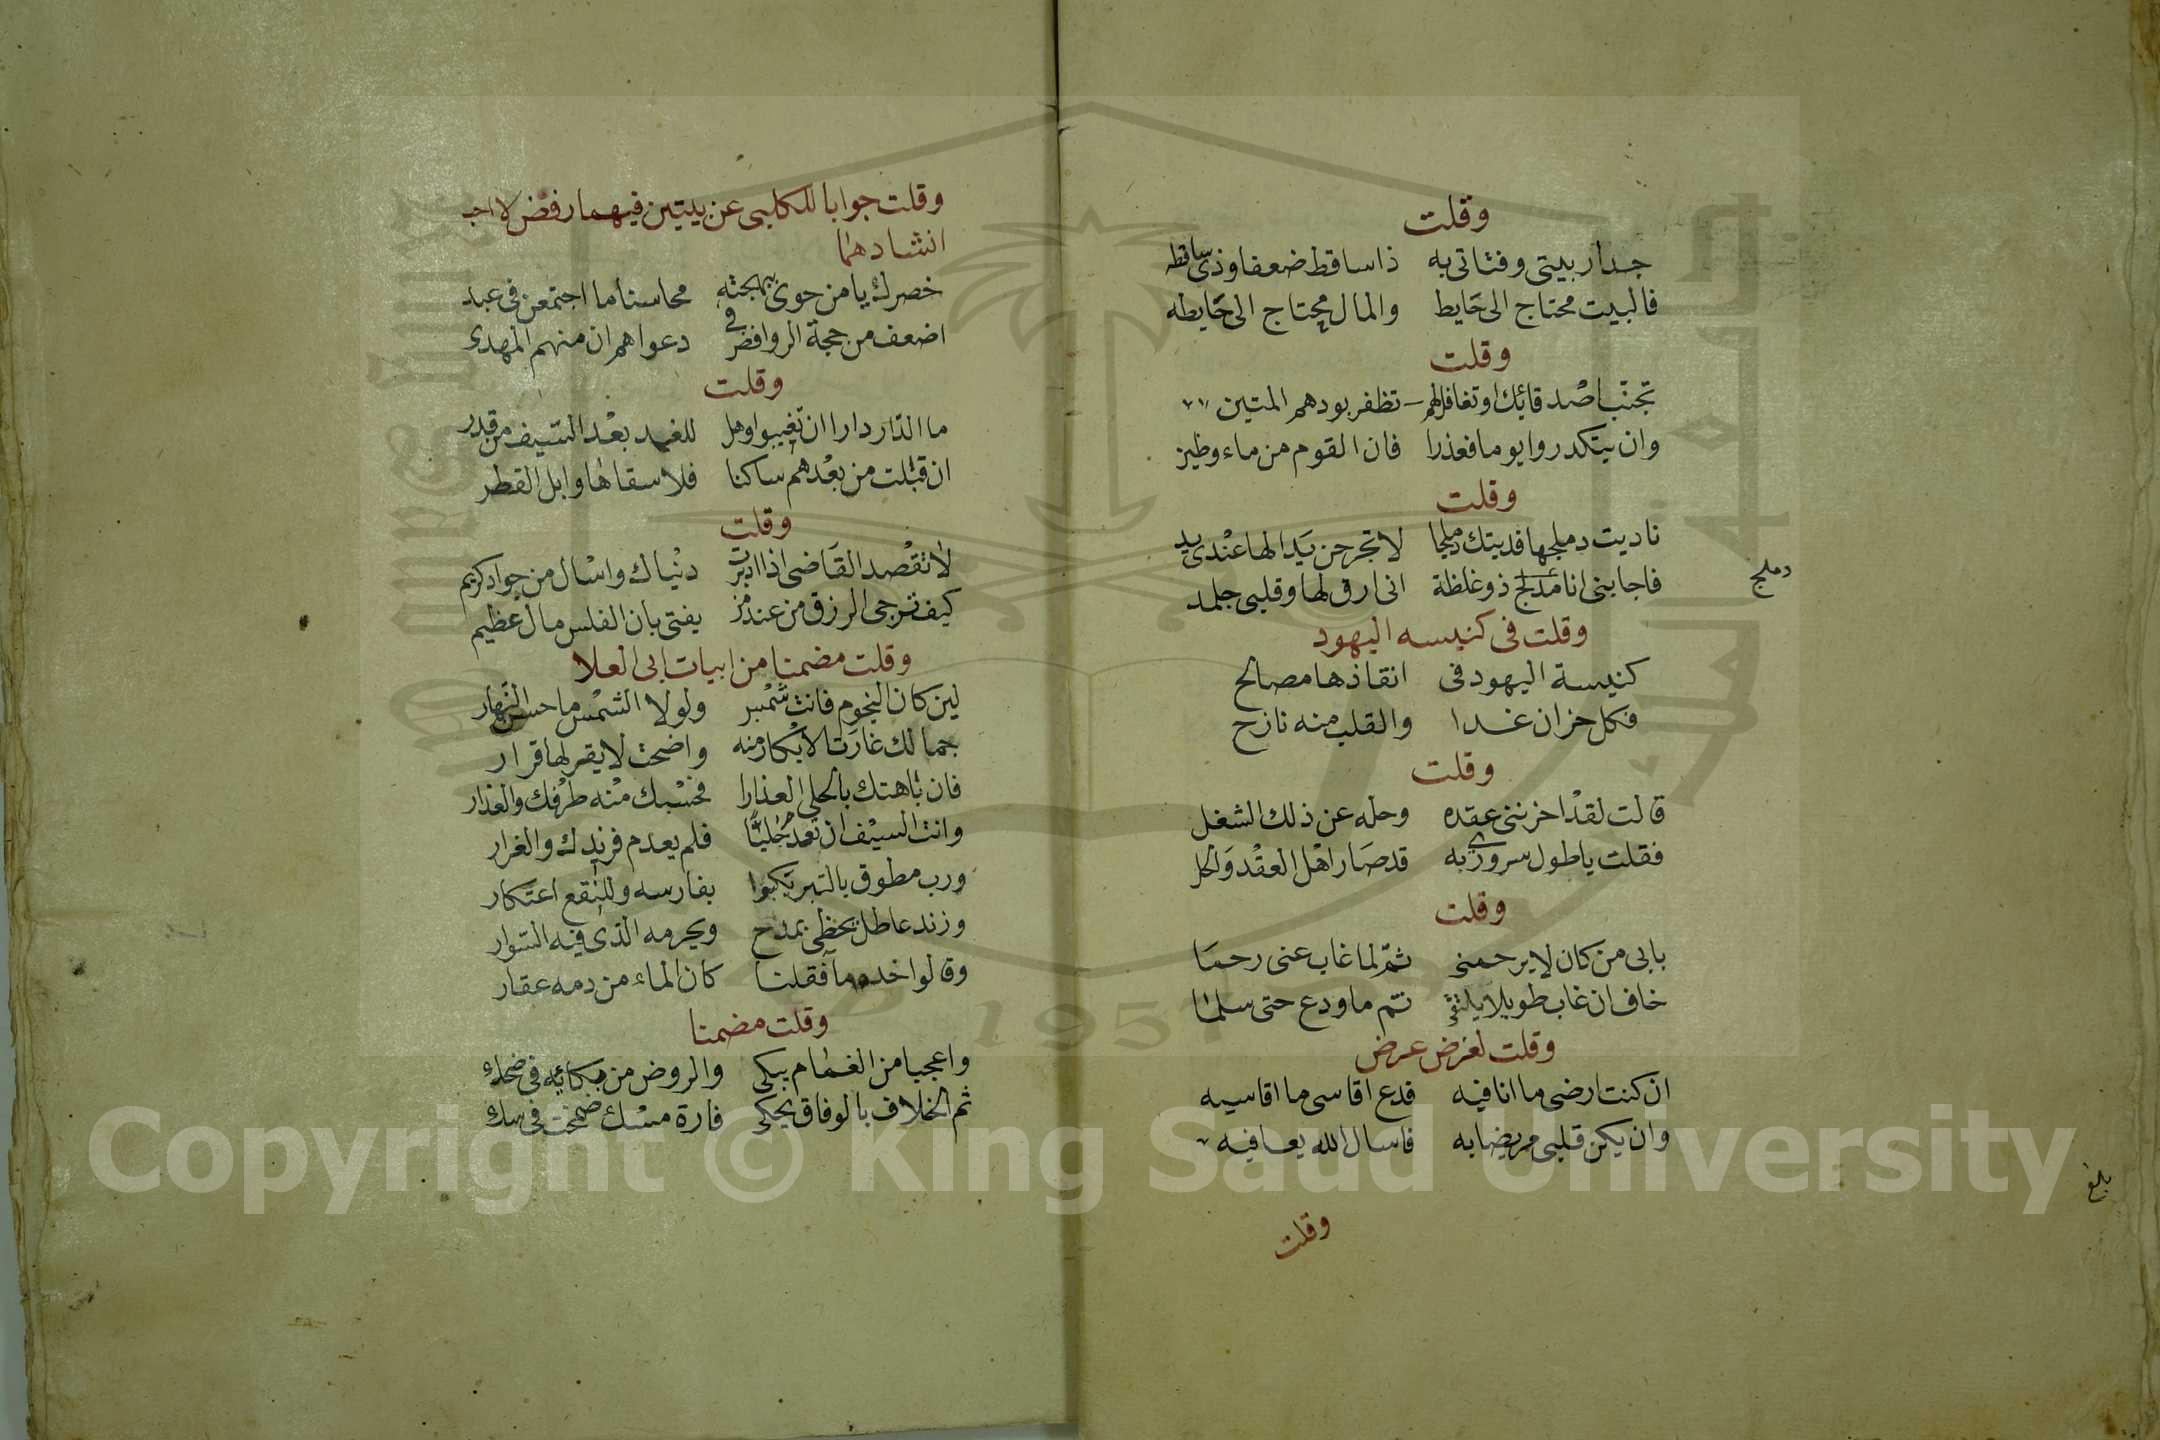 وقلت
جدار بيتى وفتاتى به ذا ساقط ضعفا وذى ساقطه
فالبيت محتاج الى حَايط والمال محتاج الى حَايطه
وقلت
تجنّب اصْدقائك او تغافل لهم تظفر بودهم المتين
وان يتكدروا يوما فعذرا فان القوم من ماء وطين
وقلت
ناديت دملجها فديتك دملجا لا تجرحن يَدا لها عنْدى يد
فاجابنى انا مدلج ذو غلظة انى ارق لها وقلبى جلمد
دملج
وقلت فى كنيسه اليهود
كنيسة اليهود فى انقاذها مصالح
فكل حزان غدا والقلب منه نازح
وقلت
قالت لقدْ اخرننى عقده وحله عن ذلك الشغل
فقلت ياطول سرورى به قد صَار اهْل العقْد وَالحل
وقلت
بابى من كان لا يرحمنى ثمّ لما غاب عنى رحمَا
خاف ان غاب طويلا يلتقى ثم ما ودع حتى سلما
وقلت لغرض عرض
ان كنت ارضى ما انا فيه فدع اقاسى ما اقاسيه
وان يكن قلبى مريضا به فاسال الله يعافيه
بلغ
وقلت
وقلت جوابا للكلبى عن بيتين فيهما رفض لا احب
انشادهما
خصرك يا من حوى بمهجته محاسنا ما اجتمعن فى عبد
اضعف من حجة الروافض فى دعواهم ان منهم المهدى
وقلت
ما الدّار دارا ان تغيبوا وهل للغمد بعْد السّيف من قدر
ان قبلت من بعْدهم ساكنا فلا سقاها وابل القطر
وقلت
لا تقْصد القَاضى اذا ادبرت دنْياك واسْال من جواد كريم
كيف ترجى الرزق من عند من يفتى بان الفلس مال عْظيم
وقلت مضمنا من ابيات ابى العلا
لين كان النجوم فانت شَمْس ولولا الشمْس ما حسن النّهار
جمالك غارت الابْكار منه واضحت لا يقر لها قرار
فان باهتك بالحلى العذارا فحسْبك منْه طرْفك والعذار
وانت السيْف ان تعدم حُليًّا فلم يعدم فرندك والغرار
ورب مطوق بالتبر يَكبوا بفارسه وللنقع اعتكار
وزند عاطل يحْظى بمدْح ويحرمه الذى فيه السوار
وقالوا خده ماْ فقلنا كان الماء من دمه عقار
وقلت مضمنا
واعجبا من الغمام يبكى والروض من بكائه فى ضحك
ثم الخلاف بالوفاق يحكى فارة مسْك ضمخت فى سك
Copyright © King Saud University
195